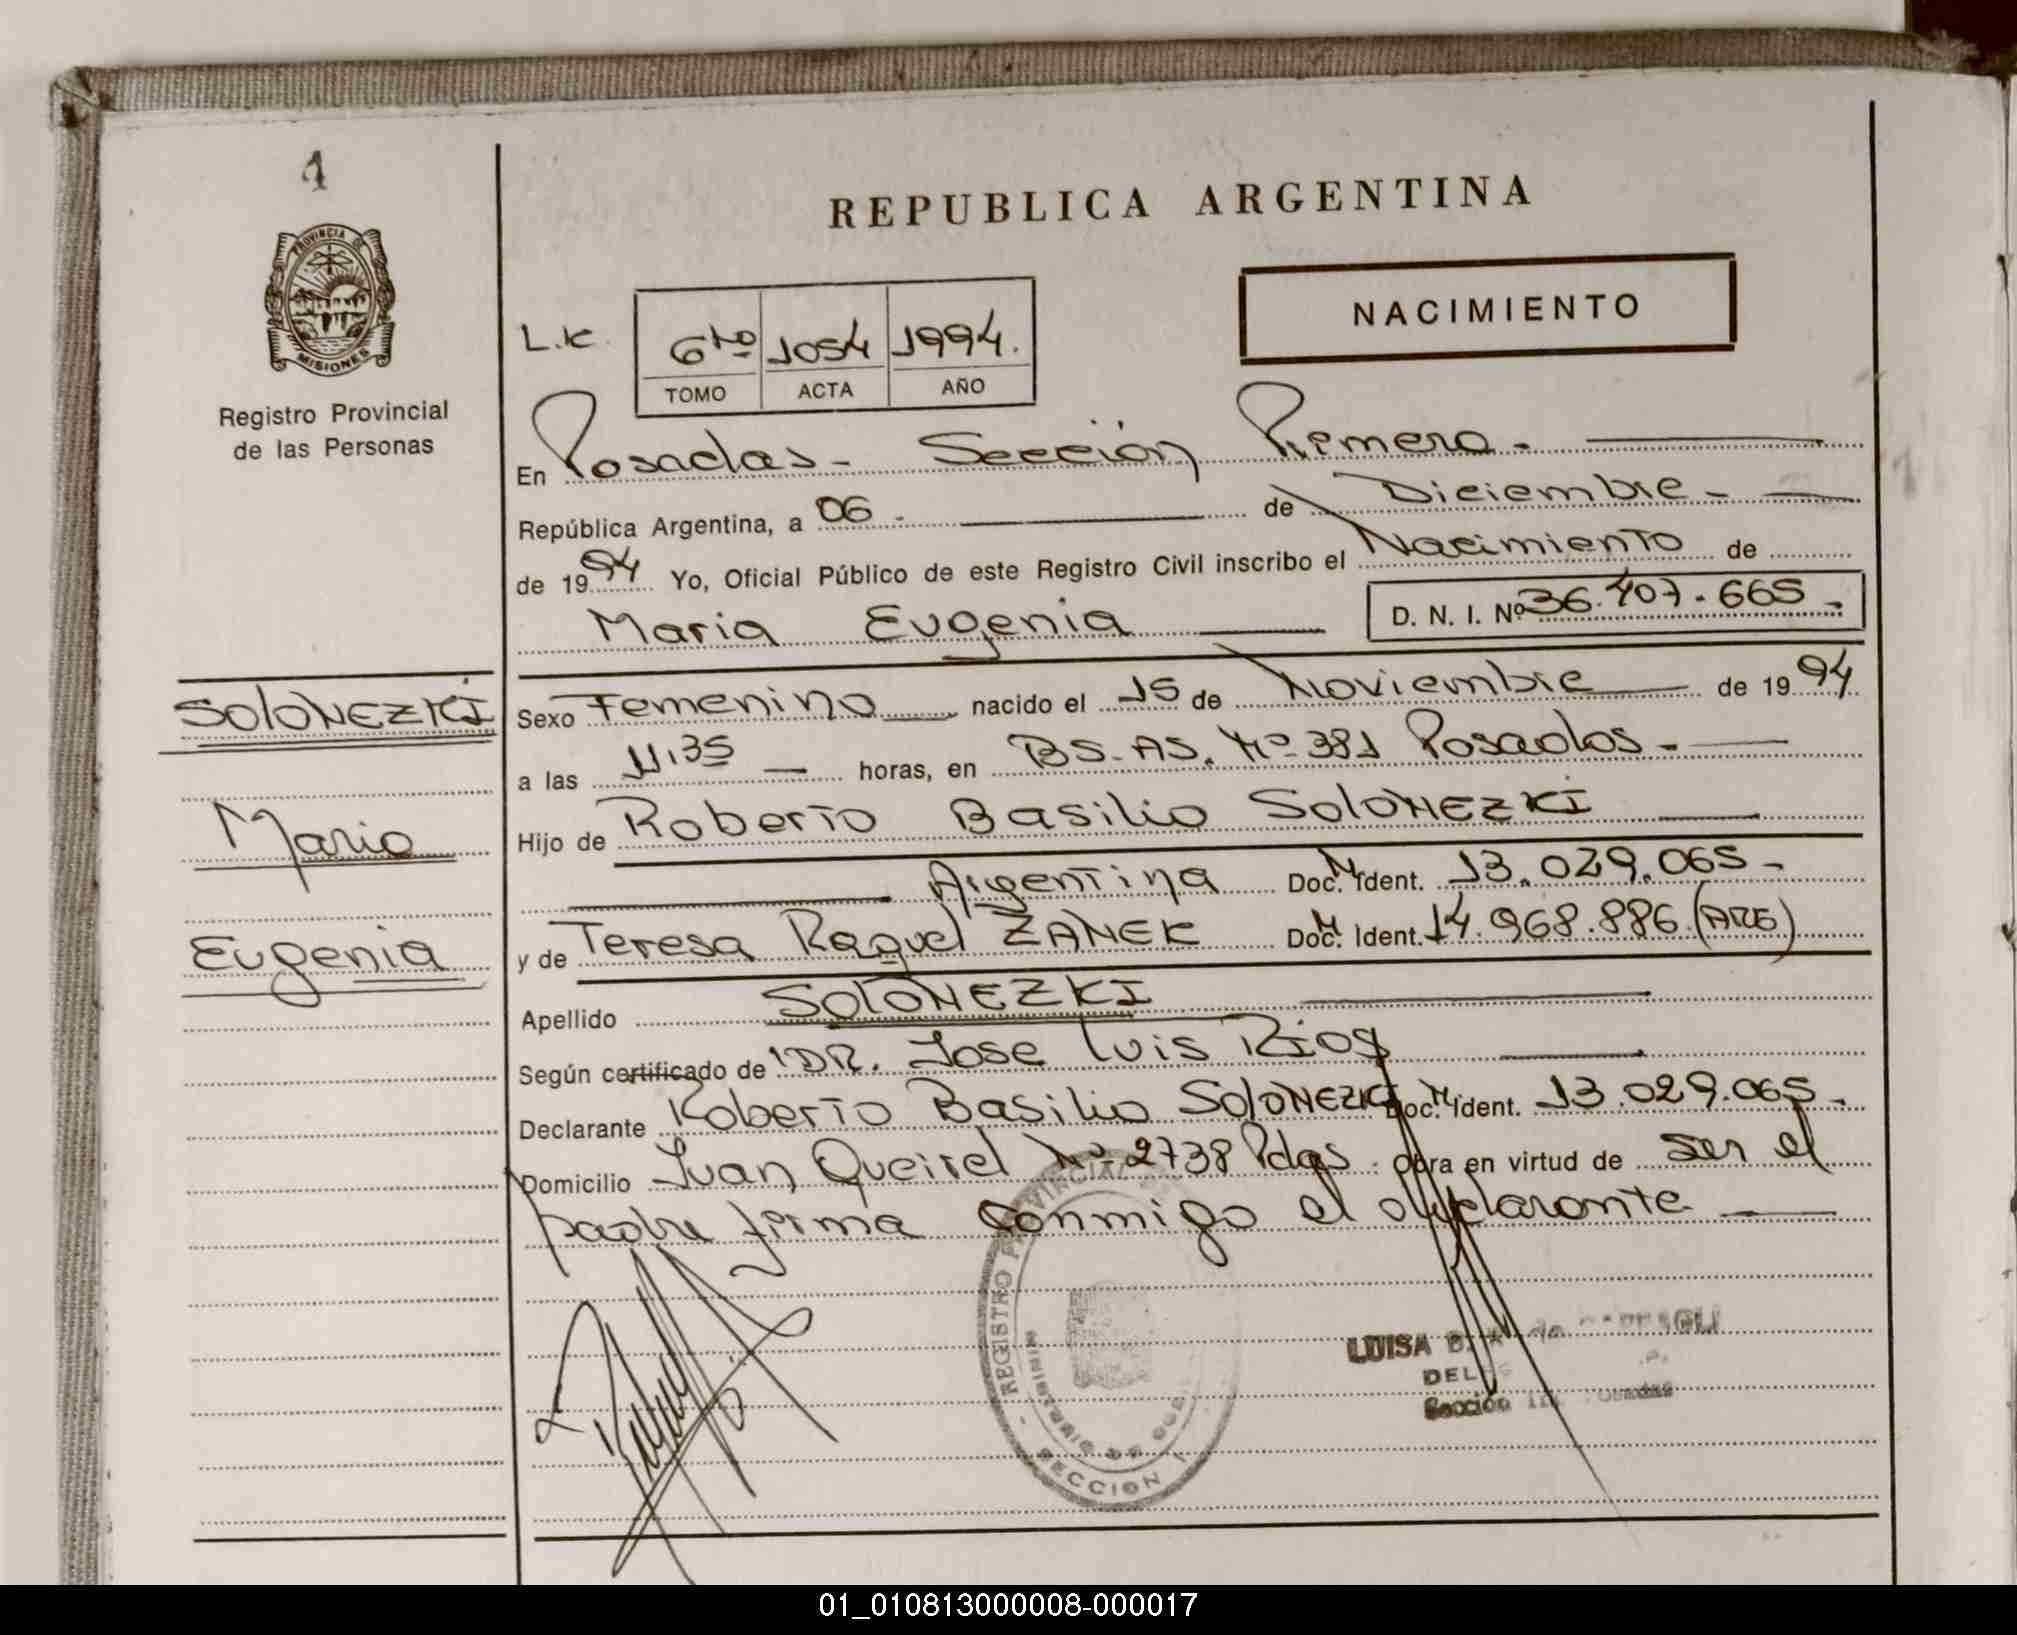 1
PROVINCIA DE
MISIONES
Registro Provincial
de las Personas
SOLONEZKI
Maria
Eugenia
REPUBLICA ARGENTINA
NACIMIENTO
L.K. 6to 1054 1994.
TOMO ACTA AÑO
En Posadas - Sección Primera.
República Argentina, a 06. de Diciembre -
de 1994 Yo, Oficial Público de este Registro Civil inscribo el Nacimiento de
Maria Eugenia D. N. I. Nº 36.407.665 -
Sexo Femenino nacido el 15 de Noviembre de 1994
a las 11,35 horas, en BS. AS. Nº 381 Posadas -
Hijo de Roberto Basilio SOLONEZKI
Argentina Doc. M. Ident. 13.029.065 -
y de Teresa Raquel ZANEK Doc. M. Ident. 14.968.886 (ARG)
Apellido SOLONEZKI
Según certificado de DR. Jose Luis Rios
Declarante Roberto Basilio SOLONEZKI Doc. M. Ident. 13.029.065 -
Domicilio Juan Queirel Nº 2738 Pdas. obra en virtud de ser el
padre firma conmigo el declarante
REGISTRO PROVINCIAL
MINISTERIO DE
SECCION 1
LUISA B.
DEL
Sección
01_010813000008-000017